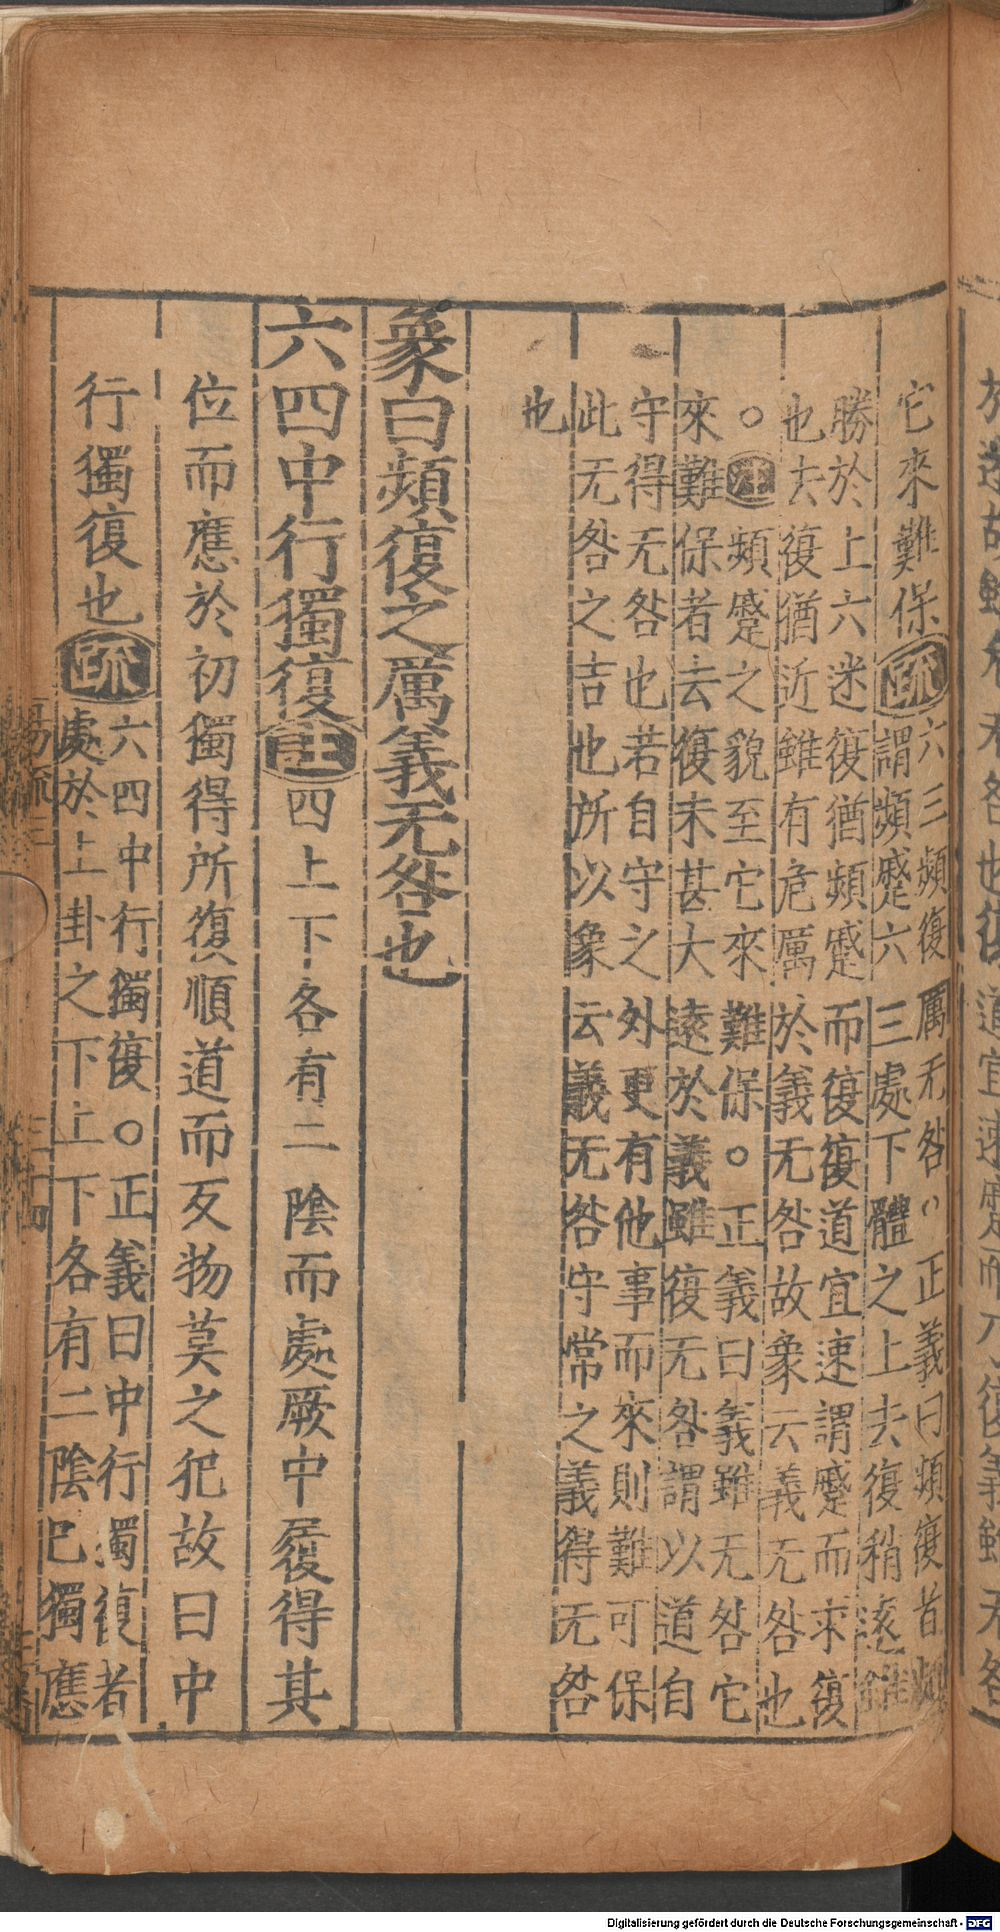 它來難保疏六三頻復厲无咎〇正義曰頻復者頻
謂頻蹙六三處下體之上去復稍遠雖
勝於上六迷復猶頻蹙而復復道宜速謂蹙而求復
也去復猶近雖有危厲於義无咎故象云義无咎也
〇注頻蹙之貌至它來難保〇正義曰義雖无咎它
來難保者去復未甚大遠於義雖復无咎謂以道自
守得无咎也若自守之外更有他事而來則難可保
此无咎之吉也所以象云義无咎守常之義得无咎
也
象曰頻復之厲義无咎也
六四中行獨復註四上下各有二陰而處厥中履得其
位而應於初獨得所復順道而反物莫之犯故曰中
行獨復也疏六四中行獨復〇正義曰中行獨復者
處於上卦之下上下各有二陰已獨應
易疏三
Digitalisierung gefördert durch die Deutsche Forschungsgemeinschaft - DFG